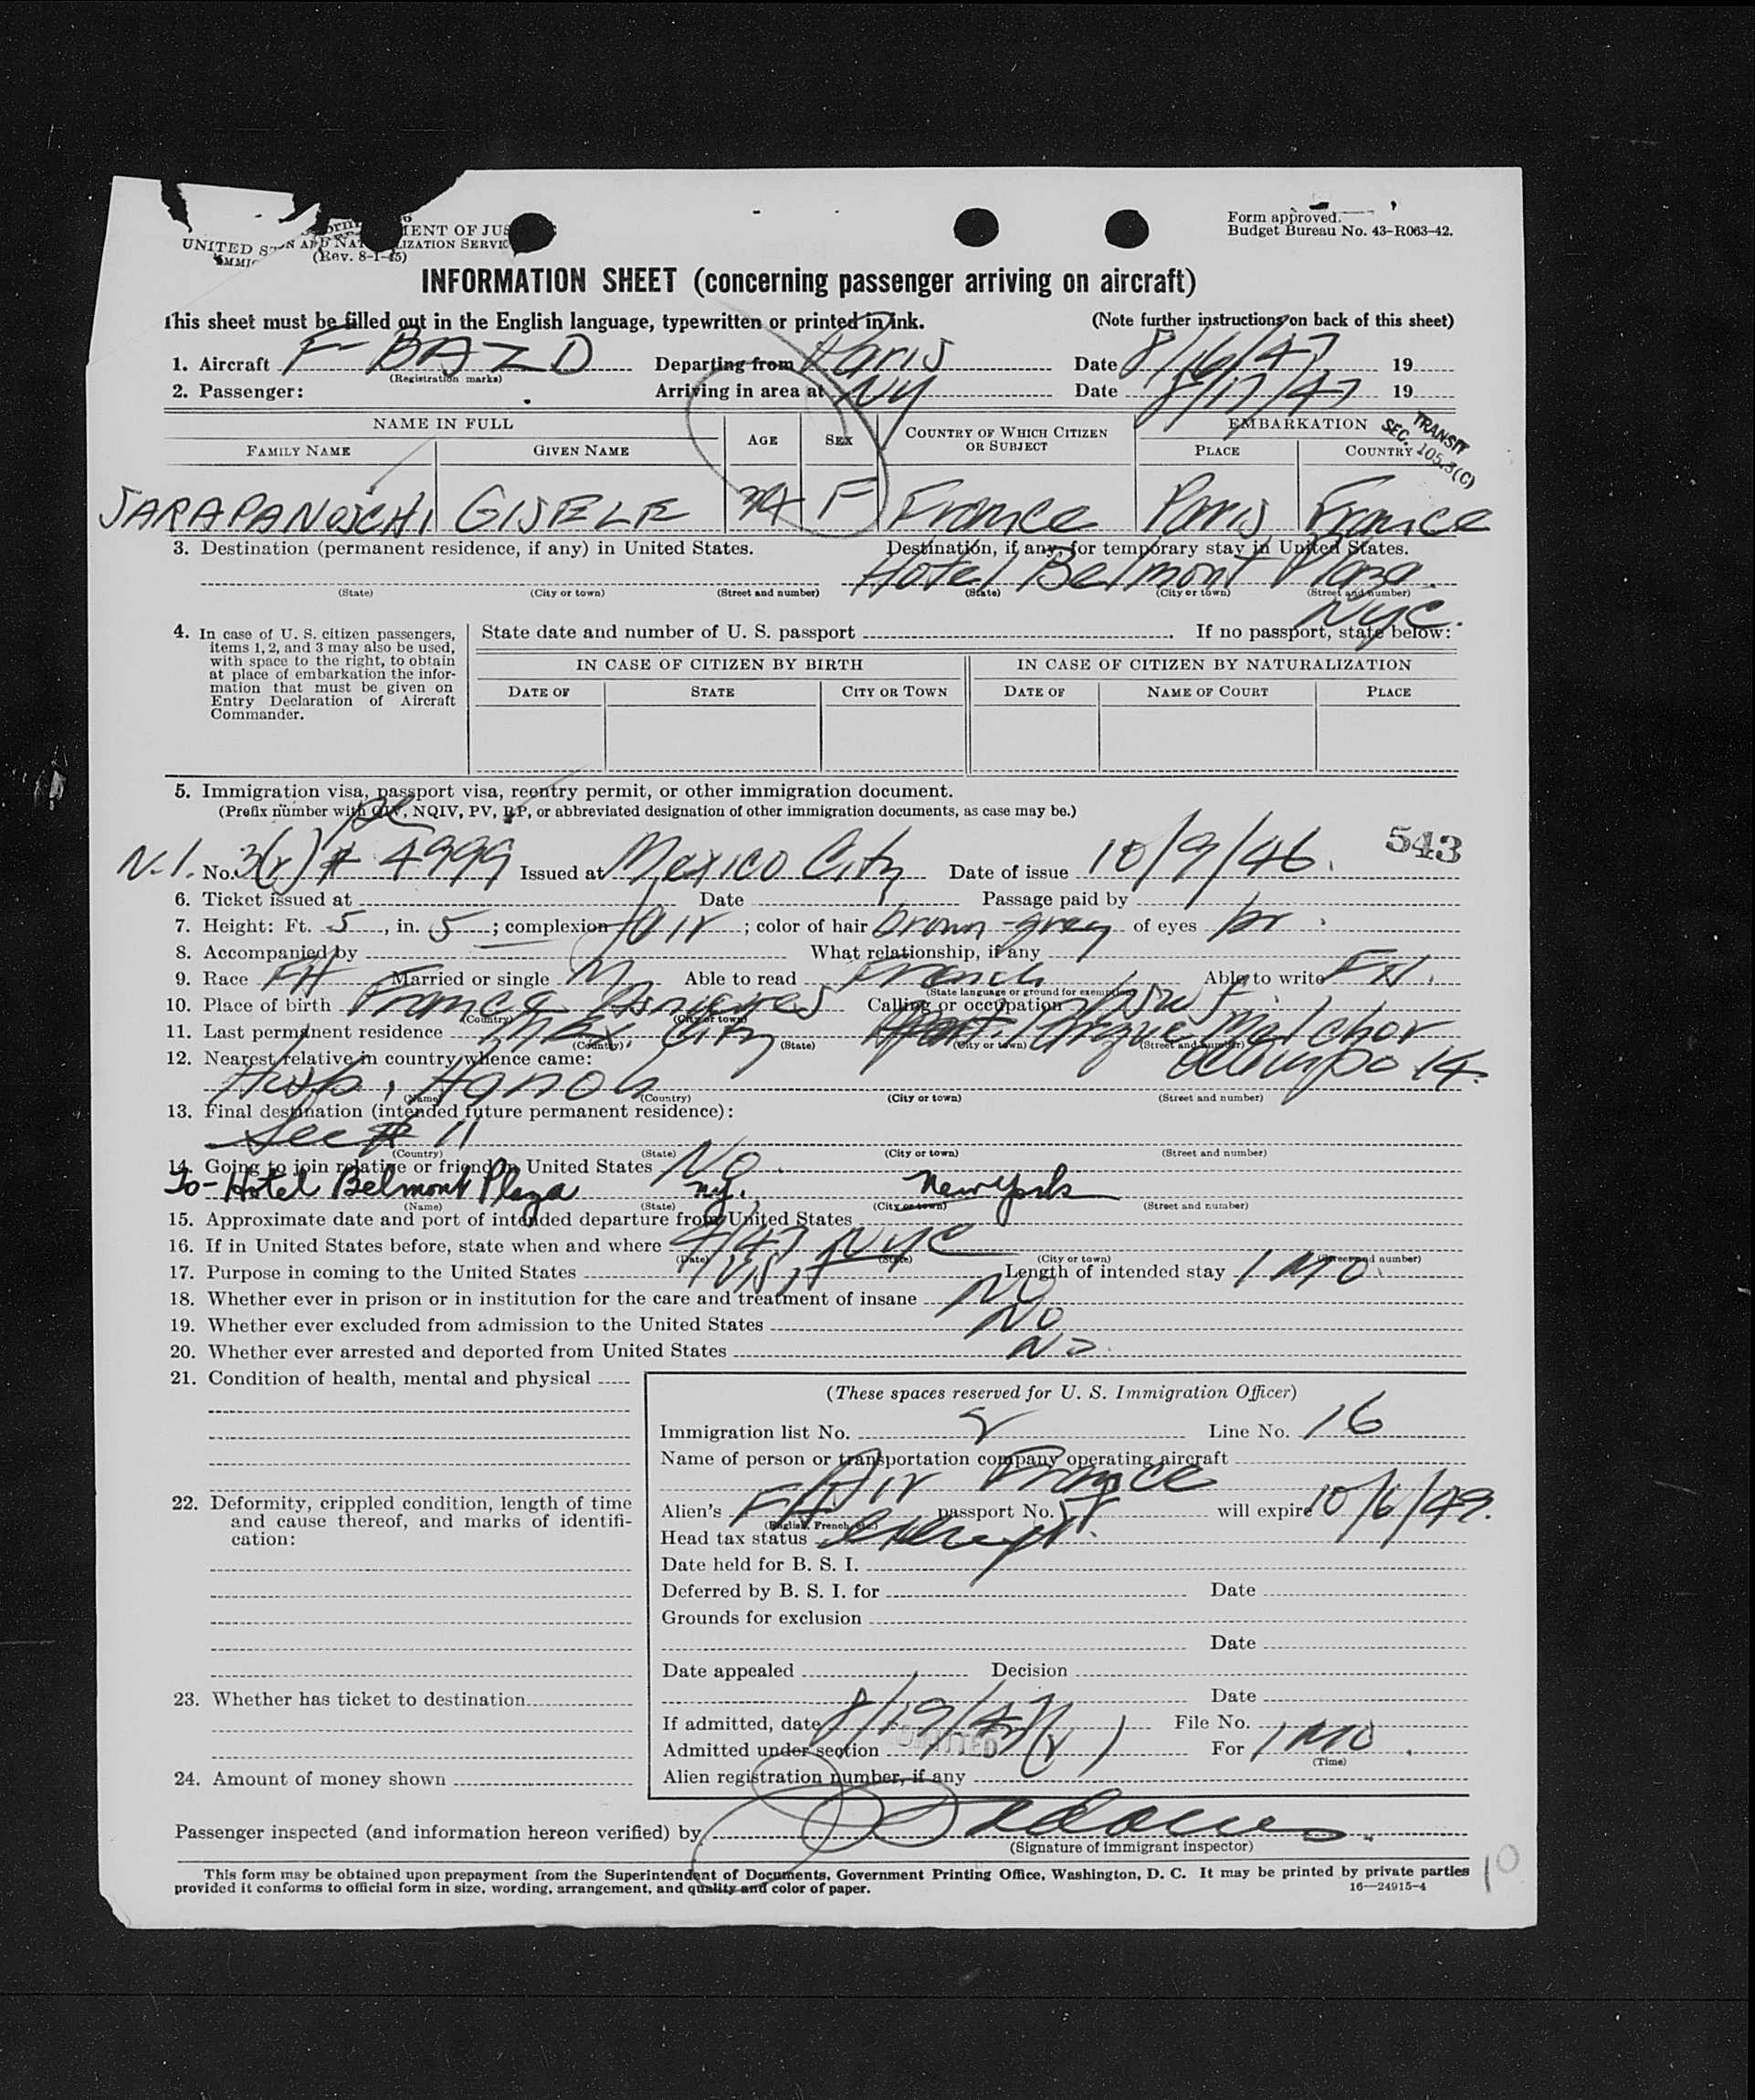 MENT OF JUS
UNITED S
IZATION SERVIC
(Rev. 8-1-45)
Form approved.
Budget Bureau No. 43-R063-42.
INFORMATION SHEET (concerning passenger arriving on aircraft)
This sheet must be filled out in the English language, typewritten or printed in ink. (Note further instructions on back of this sheet)
1. Aircraft F-BAZD Departing from Paris Date 8/16/47 19
(Registration marks)
2. Passenger: Arriving in area at NY Date 8/17/47 19
NAME IN FULL AGE SEX COUNTRY OF WHICH CITIZEN OR SUBJECT EMBARKATION
FAMILY NAME GIVEN NAME PLACE COUNTRY
TRANSIT
SEC. 105.3(C)
SARAPANOSCHI GISELE F France Paris France
3. Destination (permanent residence, if any) in United States. Destination, if any, for temporary stay in United States.
Hotel Belmont Plaza
(State) (City or town) (Street and number) (State) (City or town) (Street and number)
NYC.
4. In case of U. S. citizen passengers, items 1, 2, and 3 may also be used, with space to the right, to obtain at place of embarkation the information that must be given on Entry Declaration of Aircraft Commander.
State date and number of U. S. passport . If no passport, state below:
IN CASE OF CITIZEN BY BIRTH IN CASE OF CITIZEN BY NATURALIZATION
DATE OF STATE CITY OR TOWN DATE OF NAME OF COURT PLACE
5. Immigration visa, passport visa, reentry permit, or other immigration document.
(Prefix number with QIV, NQIV, PV, RP, or abbreviated designation of other immigration documents, as case may be.)
543
N.I. No. 3(2) # 4999 Issued at Mexico City Date of issue 10/9/46.
6. Ticket issued at Date Passage paid by
7. Height: Ft. 5, in. 5; complexion fair; color of hair brown-grey of eyes br.
8. Accompanied by What relationship, if any
9. Race FH Married or single M Able to read French Able to write FH.
(State language or ground for exemption)
10. Place of birth France Calling or occupation Hswf.
(Country) (City or town)
11. Last permanent residence Mex. City Melchor
(Country) (State) (City or town) (Street and number)
Ocampo 14.
12. Nearest relative in country whence came:
Husb.
(Name) (Country) (City or town) (Street and number)
13. Final destination (intended future permanent residence):
See # 11
(Country) (State) (City or town) (Street and number)
14. Going to join relative or friend in United States No.
To- Hotel Belmont Plaza N.Y. New York
(Name) (State) (City or town) (Street and number)
15. Approximate date and port of intended departure from United States
16. If in United States before, state when and where 4/47 NYC
(Date) (State) (City or town) (Street and number)
17. Purpose in coming to the United States Visit Length of intended stay 1 MO.
18. Whether ever in prison or in institution for the care and treatment of insane NO
19. Whether ever excluded from admission to the United States NO
20. Whether ever arrested and deported from United States NO.
21. Condition of health, mental and physical
22. Deformity, crippled condition, length of time and cause thereof, and marks of identification:
23. Whether has ticket to destination
24. Amount of money shown
(These spaces reserved for U. S. Immigration Officer)
Immigration list No. 2 Line No. 16
Name of person or transportation company operating aircraft
Air France
Alien's FH passport No. will expire 10/6/49.
(English, French, etc.)
Head tax status exempt.
Date held for B. S. I.
Deferred by B. S. I. for Date
Grounds for exclusion
Date
Date appealed Decision
Date
If admitted, date 8/19/47 File No.
Admitted under section 3(2) For 1 MO.
(Time)
Alien registration number, if any
Passenger inspected (and information hereon verified) by
(Signature of immigrant inspector)
This form may be obtained upon prepayment from the Superintendent of Documents, Government Printing Office, Washington, D. C. It may be printed by private parties
provided it conforms to official form in size, wording, arrangement, and quality and color of paper. 16—24915-4
10